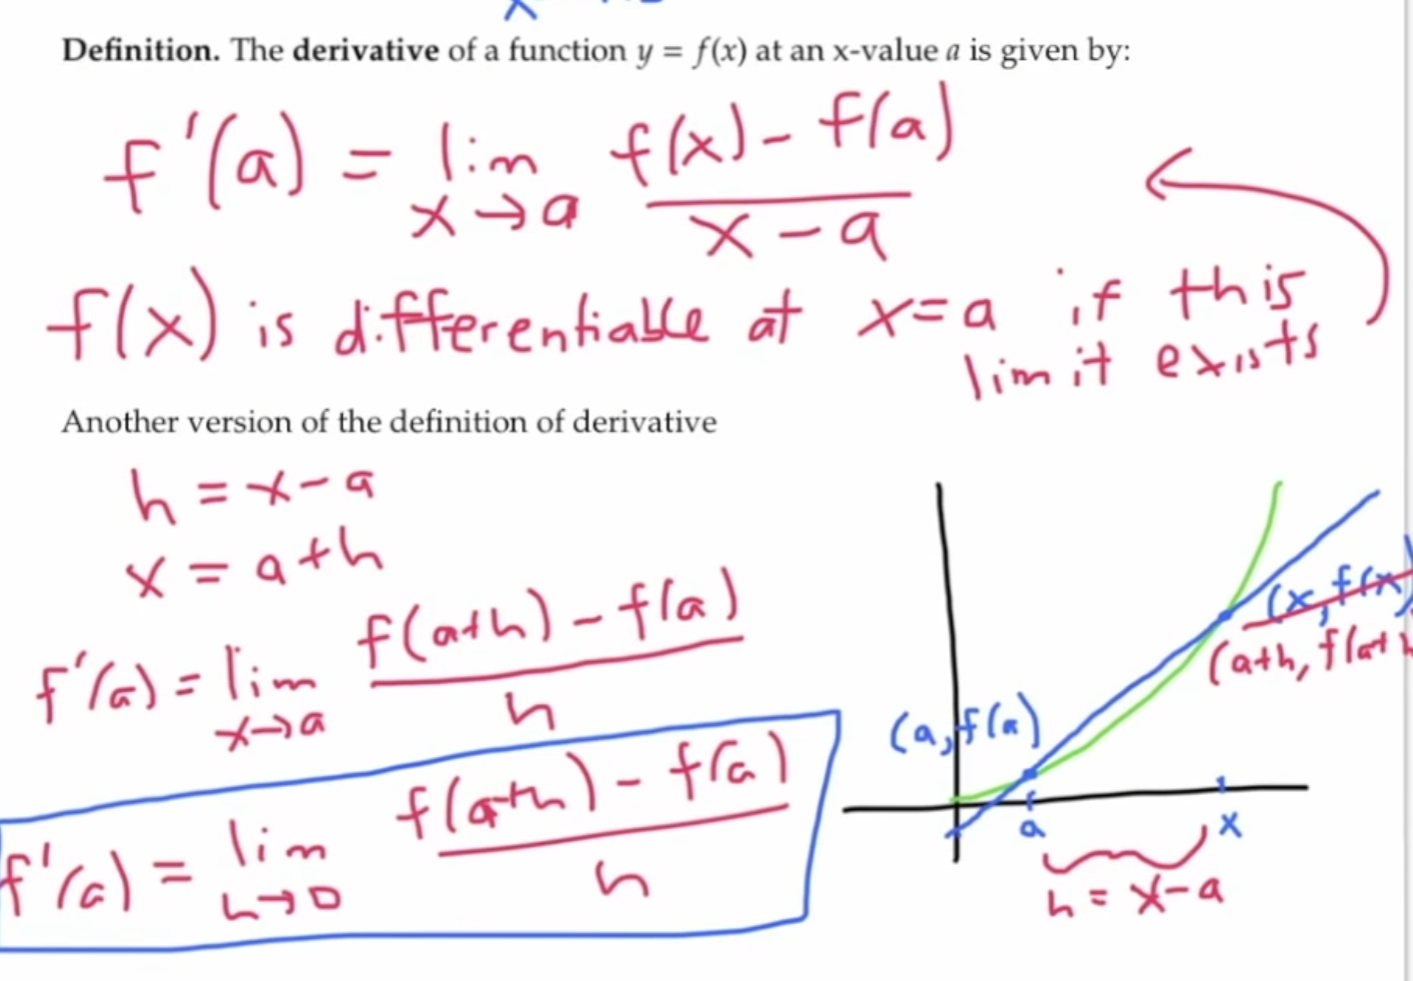 Definition. The derivative of a function y = f(x) at an x-value a is given by:
f'(a) = lim x→a (f(x) - f(a)) / (x - a)
f(x) is differentiable at x=a if this
limit exists
Another version of the definition of derivative
h = x - a
x = a + h
f'(a) = lim x→a (f(a+h) - f(a)) / h
f'(a) = lim h→0 (f(a+h) - f(a)) / h
(x, f(x))
(a+h, f(a+h
(a, f(a))
a
x
h = x - a